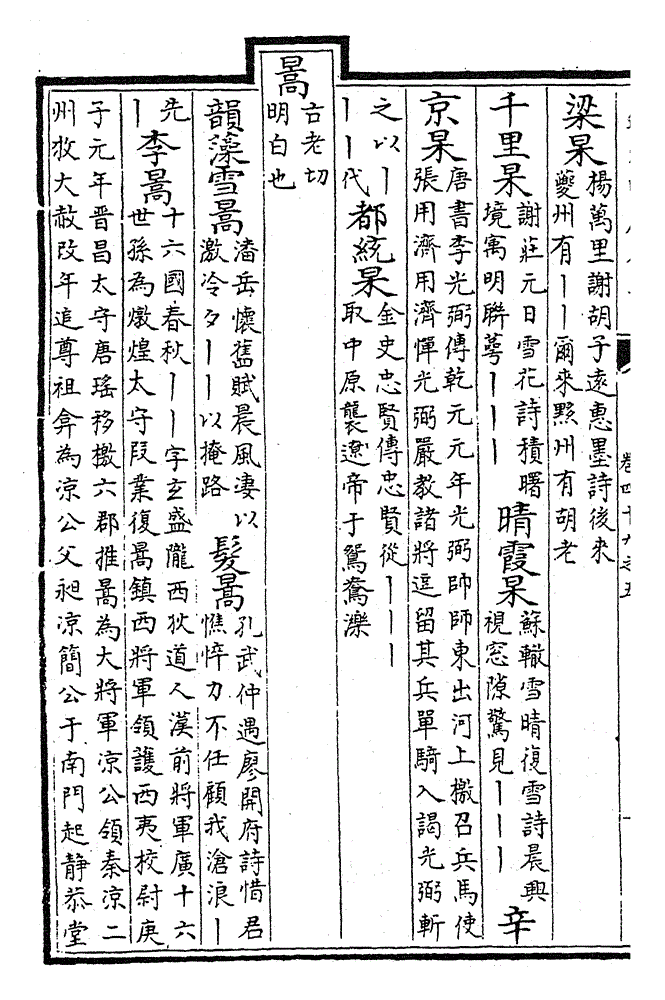 梁杲
楊萬里謝胡子逺惠墨詩後來
夔州有丨丨爾來黟州有胡老
千里杲
謝莊元日雪花詩積曙
境寓明聯萼丨丨丨
晴霞杲
蘇轍雪晴復雪詩晨興
視窓隙驚見丨丨丨
辛
京杲
唐書李光弼傳乾元元年光弼師師東出河上檄召兵馬使
張用濟用濟憚光弼嚴教諸將逗留其兵單騎入謁光弼斬
之以丨
丨丨代
都統杲
金史忠賢傳忠賢從丨丨丨
取中原襲遼帝于鴛鴦濼
暠
古老切
明白也
韻藻雪暠
潘岳懷舊賦晨風凄以
激冷夕丨丨以掩路
髮暠
孔武仲遇廖開府詩惜君
憔悴力不任顧我滄浪丨
先
丨
李暠
十六國春秋丨丨字玄盛隴西狄道人漢前將軍廣十六
世孫為燉煌太守段業復暠鎮西將軍領護西夷校尉庚
子元年晉昌太守唐瑤移檄六郡推暠為大將軍涼公領秦涼二
州牧大赦改年追尊祖弇為涼公父昶涼簡公于南門起静恭堂